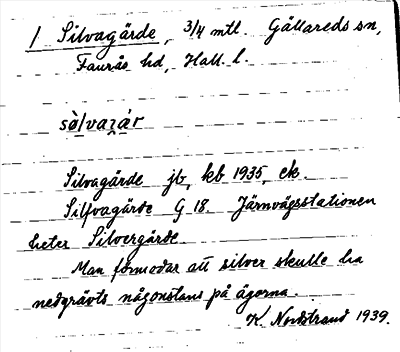 1 Silvagärde, 3/4 mtl. Gällareds sn,
Faurås hd, Hall. l.
sòlvaʒár
Silvagärde jb, kb 1935, ek.
Silfvagärde G 18. Järnvägsstationen
heter Silvergärde.
Man förmodar att silver skulle ha
nedgrävts någonstans på ägorna.
K. Nordstrand 1939.